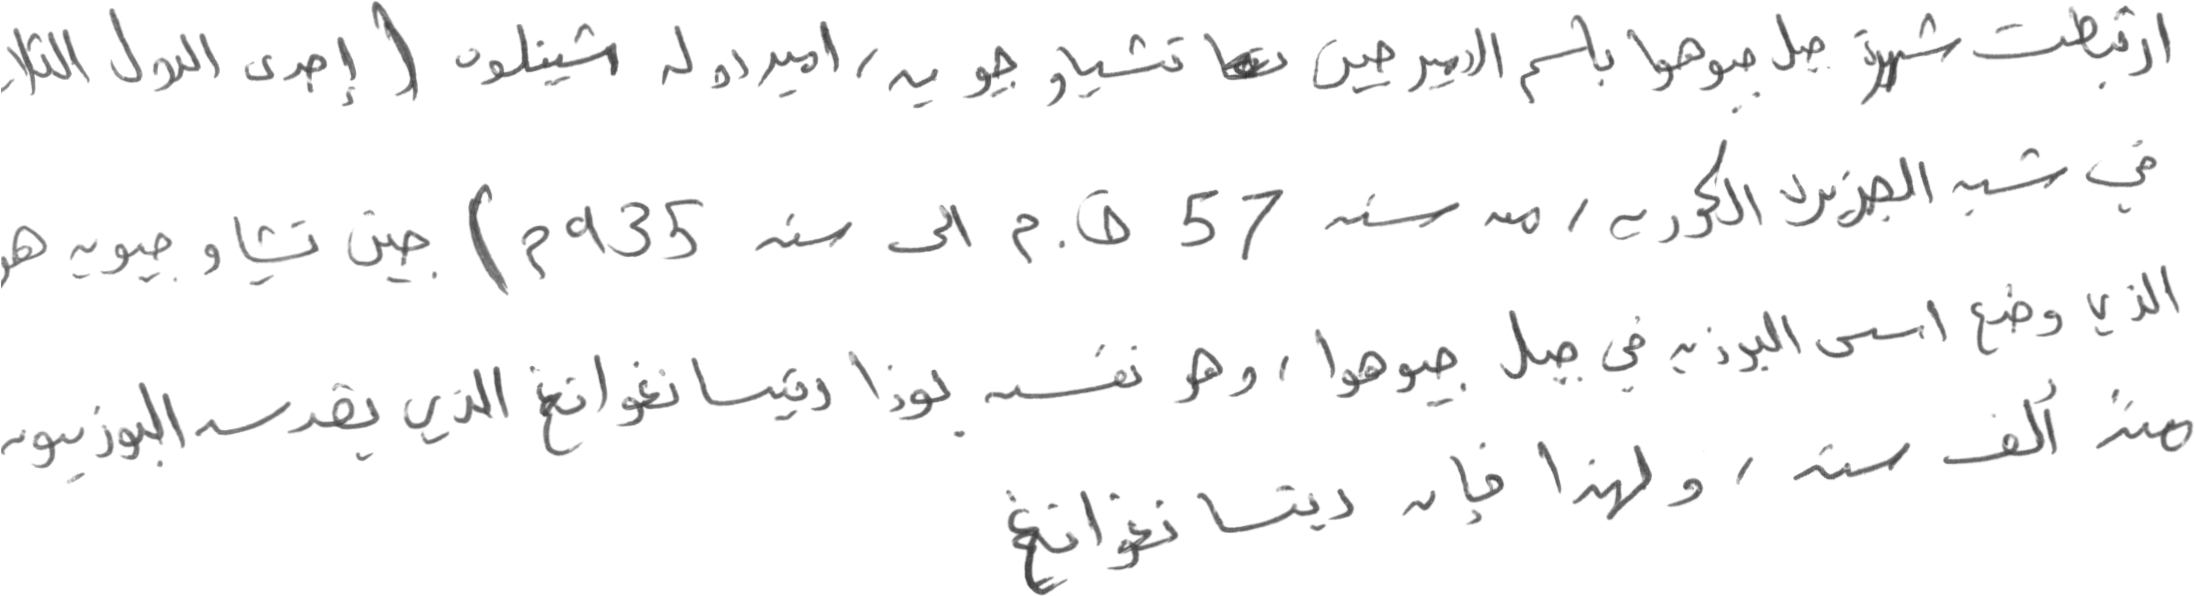 ارتبطت شهرة جبل جيوهوا باسم الامير جين تشياو جويه، امير دوله شينلون (إحدى الدول الثلاث
في شبه الجزيرة الكورية، من سنه 57 ق.م الى سنه 935م) جين تشاو جيويه هو
الذي وضع اسس البوذيه في جبل جيوهوا، وهو نفسه بوذا ديتسانغوانغ الذي يقدسه البوذيون
منذ ألف سنة، ولهذا فإن ديتسانغوانغ